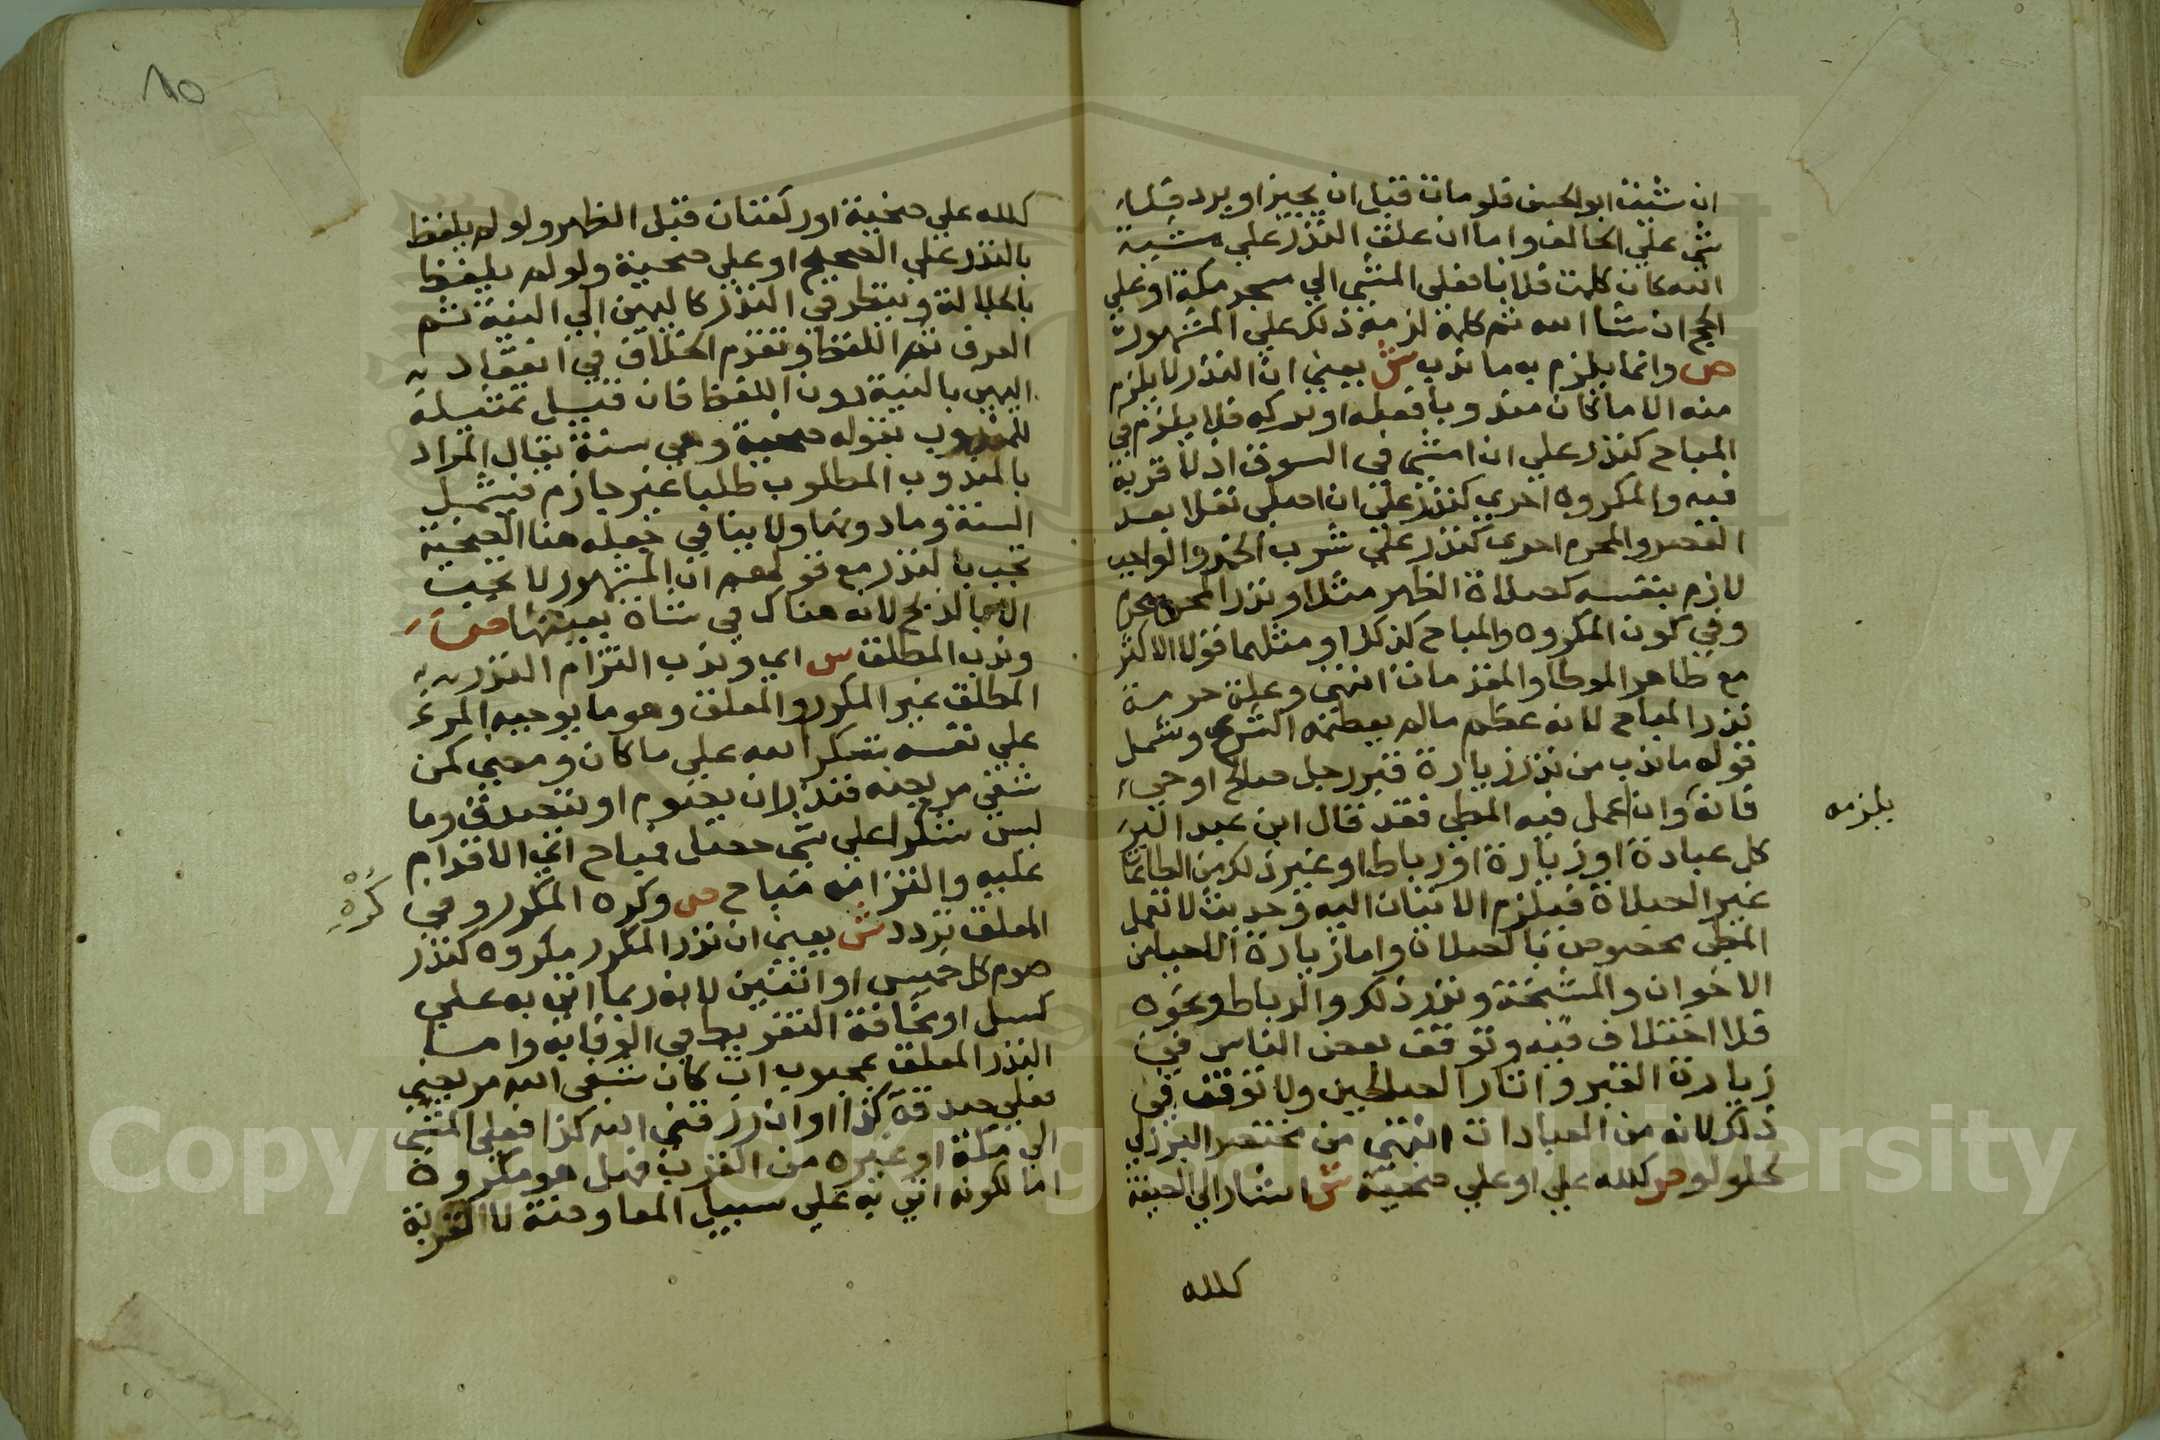 ان شئت ابو الحسن فلو مات قبل ان يجيز او يرد فلا
شي علي الحالف واما ان علق النذر علي مشية
الله كان كلمت فلانا فعلي المشي الي مسجد مكة او علي
الحج ان شا الله ثم كلمه لزمه ذلك علي المشهور
ص وانما يلزم به ما ندب ش يعني ان النذر لا يلزم
منه الا ما كان مندوبا فعله او تركه فلا يلزم في
المباح كنذر علي ان امشي في السوق اذ لا قربة
فيه والمكروه احري كنذر علي ان اصلي نفلا بعد
العصر والمحرم احري كنذر علي شرب الخمر والواجب
لازم بنفسه كصلاة الظهر مثلا ونذر المحرم محرم
وفي كون المكروه والمباح كذلك او مثلهما قولا الاكثر
مع ظاهر الموطا والمقدمات انتهي وعلة حرمة
نذر المباح لانه عظم ماله يعظمه الشرع وشمل
قوله ما ندب من نذر زيارة قبر رجل صالح او حي
فانه وان اعمل فيه المطي فقد قال ابن عبد البر
يلزمه
كل عبادة او زيارة او رباط او غير ذلك من الطاعات
غير الصلاة فيلزم الاتيان اليه وحديث لا تعمل
المطي مخصوص بالصلاة واما زيارة الاحيا من
الاخوان والمشيخة ونذر ذلك والرباط ونحوه
فلا اختلاف فيه وتوقف بعض الناس في
زيارة القبر واثار الصالحين ولا توقف في
ذلك لانه من العبادات انتهي من مختصر البرزلي
لحلولو ص كلله علي او علي ضحية ش اشار الي الصيغة
كلله
10
كلله علي ضحية او ركعتان قبل الظهر ولو لم يلفظ
بالنذر علي الصحيح او علي ضحية ولو لم يلفظ
بالجلالة وينظر في النذر كاليمين الي النية ثم
العرف ثم اللفظ وتقدم الخلاف في انعقاد
اليمين بالنية دون اللفظ فان قيل تمثيله
للمندوب بقوله ضحية وهي سنة يقال المراد
بالمندوب المطلوب طلبا غير جازم فيشمل
السنة وما دونها ولا ينافي جعله هنا الضحية
تجب بالنذر مع قولهم ان المشهور لا تجب
الا بالذبح لانه هناك في شاة بعينها ص
وندب المطلق س اي وندب التزام النذر
المطلق غير المكرر والمعلق وهو ما يوجبه المرء
علي نفسه شكر الله علي ما كان ومضي كمن
شفي مريضه فنذر ان يصوم او يتصدق وما
ليس شكرا علي شي حصل فمباح اي الاقدام
عليه والتزامه مباح ص وكره المكرر وفي
كره
المعلق تردد ش يعني ان نذر المكرر مكروه كنذر
صوم كل خميس او اثنين لانه ربما اتي به علي
كسل او مخافة التفريط في الوفا به واما
النذر المعلق بمحبوب ان كان شفي الله مريضي
فعلي صدقة كذا او ان رزقني الله كذا فعلي المشي
الي مكة او غيره من القرب فهل هو مكروه
اما لكونه اتي به علي سبيل المعاوضة لا القربة